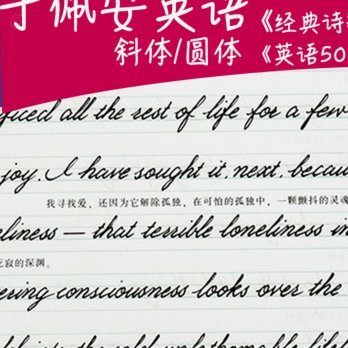 于佩安英语《经典诗
斜体/圆体《英语50
ficed all the rest of life for a few
joy. I have sought it, next, becau
我寻找爱，还因为它解除孤独，在可怕的孤独中，一颗颤抖的灵魂
eliness — that terrible loneliness in
死寂的深渊。
ering consciousness looks over the
the cold unfathomable lifel